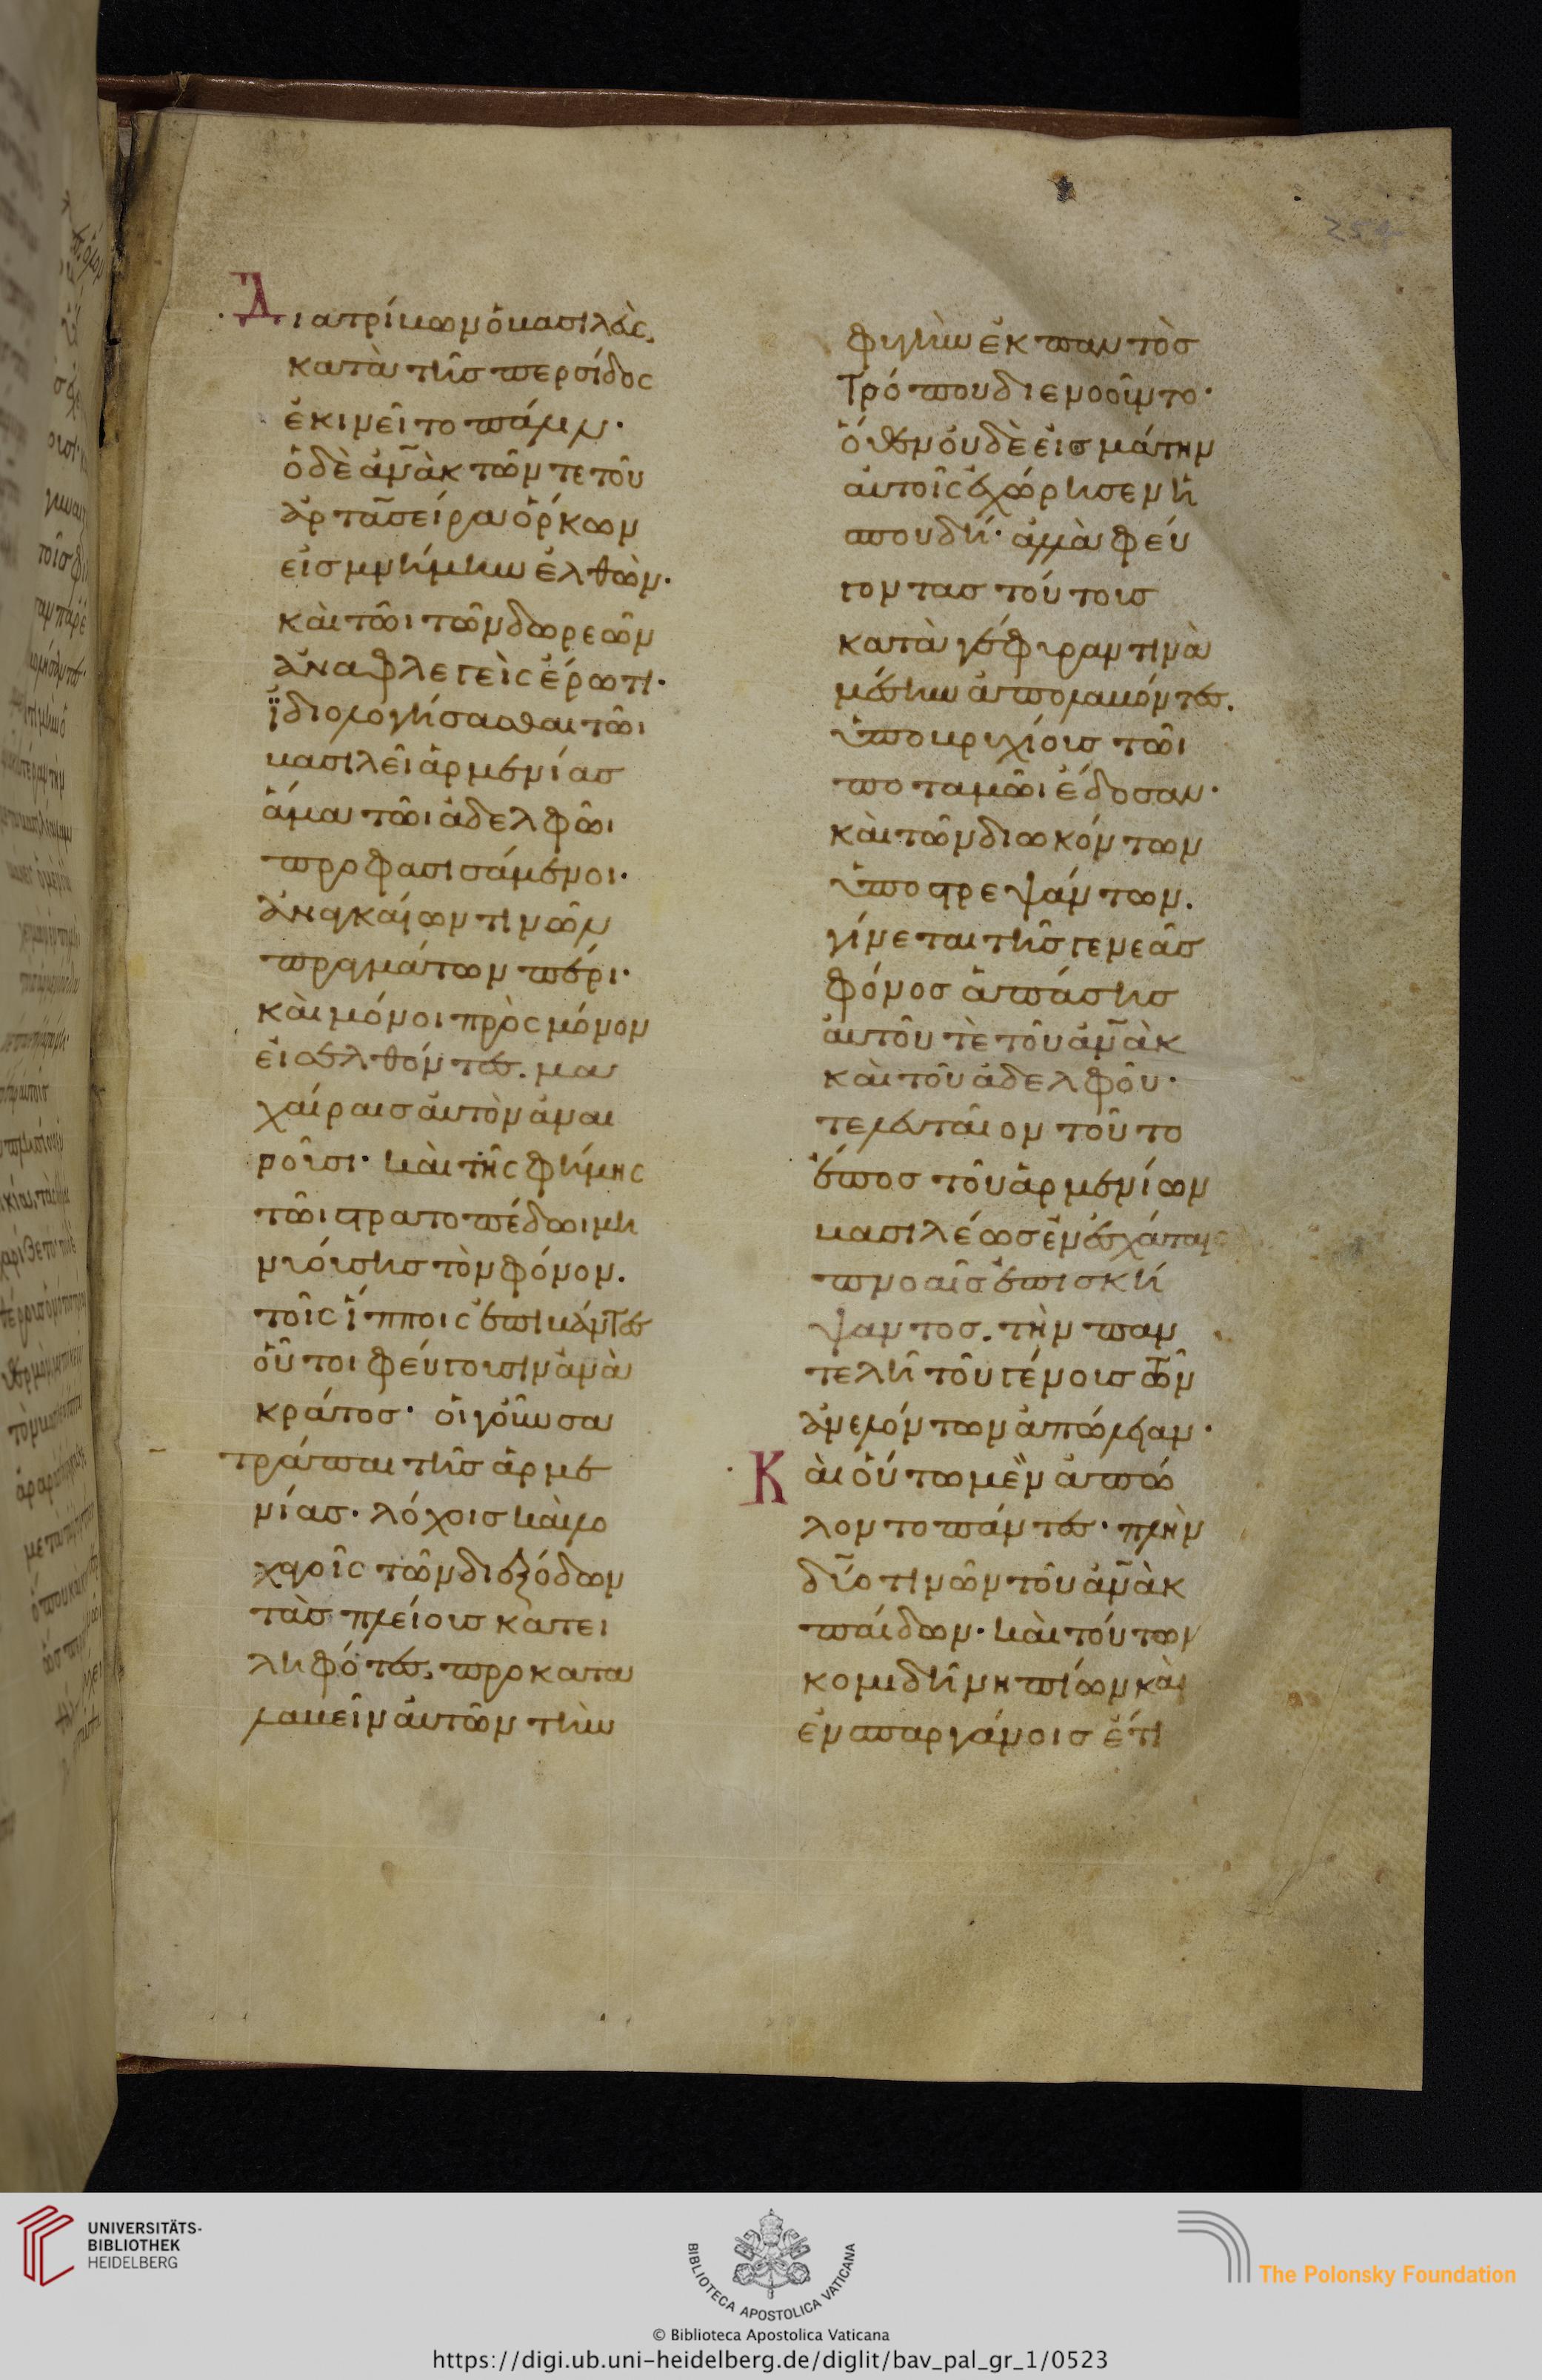 254
Διατρίβων ὁ βασιλεὺς
κατὰ τῆς περσίδος
ἐκινεῖτο πάλιν·
ὁ δὲ ἀνὰκ τῶν τε τοῦ
ἀρτασείρα ὅρκων
εἰς μνήμην ἐλθὼν·
καὶ τῶι τῶν δωρεῶν
ἀναφλεγεὶς ἔρωτι·
ἰδιολογήσασθαι τῶι
βασιλεῖ ἀρμενίας
ἅμα τῶι ἀδελφῶι
προφασισάμενοι·
ἀναγκαίων τινῶν
πραγμάτων πέρι·
καὶ μόνοι πρὸς μόνον
εἰσελθόντες. μα
χαίραις αὐτὸν ἀναι
ροῦσι· καὶ τῆς φήμης
τῶι στρατοπέδωι μη
νυούσης τὸν φόνον.
τοῖς ἵπποις ἐπιβάντες
οὗτοι φεύγουσιν ἀνὰ
κράτος· οἱ γοῦν σα
τράπαι τῆς ἀρμε
νίας· λόχοις καὶ λο
χαοῖς τῶν διεξόδων
τὰς πλείους κατει
ληφότες, προκατα
λαβεῖν αὐτῶν τὴν
φυγὴν ἐκ παντὸς
τρόπου διενοοῦντο·
ὅθεν οὐδὲ εἰς μάτην
αὐτοῖς ἐχώρησεν ἡ
σπουδή· ἀλλὰ φεύ
γοντας τούτους
κατὰ γέφυραν τινὰ
μέσην ἀπολαβόντες.
ὑποβρυχίους τῶι
ποταμῶι ἔδοσαν·
καὶ τῶν διωκόντων
ὑποστρεψάντων.
γίνεται τῆς γενεᾶς
φόνος ἁπάσης
αὐτοῦ τὲ τοῦ ἀνὰκ
καὶ τοῦ ἀδελφοῦ·
τελευταῖον τοῦτο
ἔπος τοῦ ἀρμενίων
βασιλέως ἐν ἐσχάταις
πνοαῖς ἐπισκή
ψαντος. τὴν παν
τελῆ τοῦ γένους τῶν
ἀνελόντων ἀπώλειαν·
Καὶ οὕτω μὲν ἀπώ
λοντο πάντες· πλὴν
δύο τινῶν τοῦ ἀνὰκ
παίδων· καὶ τούτων
κομιδῆ νηπίων καὶ
ἐν σπαργάνοις ἔτι
UNIVERSITÄTS-
BIBLIOTHEK
HEIDELBERG
BIBLIOTECA APOSTOLICA VATICANA
The Polonsky Foundation
© Biblioteca Apostolica Vaticana
https://digi.ub.uni-heidelberg.de/diglit/bav_pal_gr_1/0523